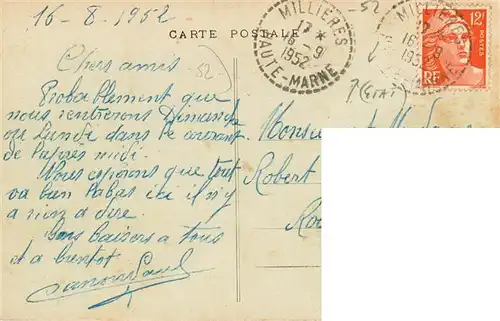 16-8-1952
CARTE POSTALE
MILLIÈRES
17 *
16-9
1952
HAUTE-MARNE
52
12F
POSTES
RF
Chers amis
Probablement que
nous rentrerons Dimanche
ou Lundi dans le courant
de l'après midi.
Nous espérons que tout
va bien Ici il n'y
a rien a dire.
Bons baisers a tous
et a bientot
Monsieur
Robert